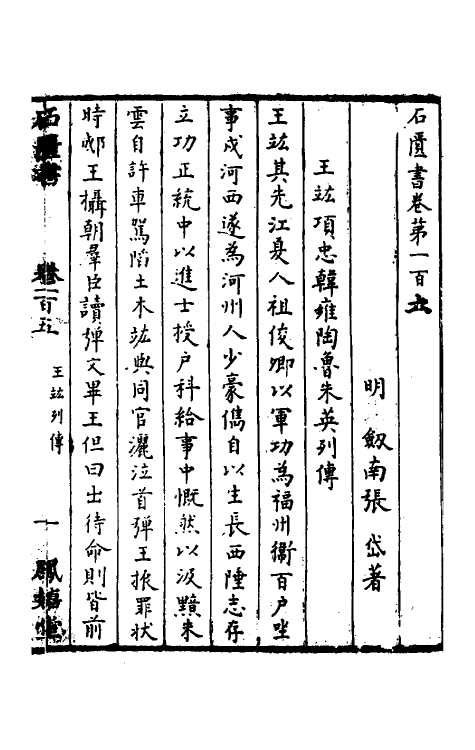 石匱書卷第一百五
明 劔南張 岱著
王竑項忠韓雍陶魯朱英列傳
王竑其先江夏人祖俊卿以軍功為福州衛百户坐
事戍河西遂為河州人少豪儁自以生長西陲志存
立功正統中以進士授户科給事中慨然以汲黯朱
雲自許車駕陷土木竑與同官灑泣首彈王振罪狀
時郕王攝朝羣臣讀彈文畢王但曰士待命則皆前
石匱書 卷一百五 王竑列傳 一 鳳嬉堂